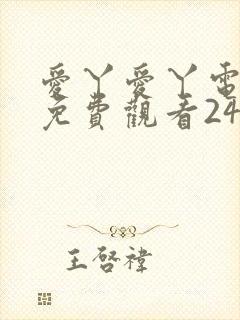 愛丫愛丫電
免費觀看24
王啓禕